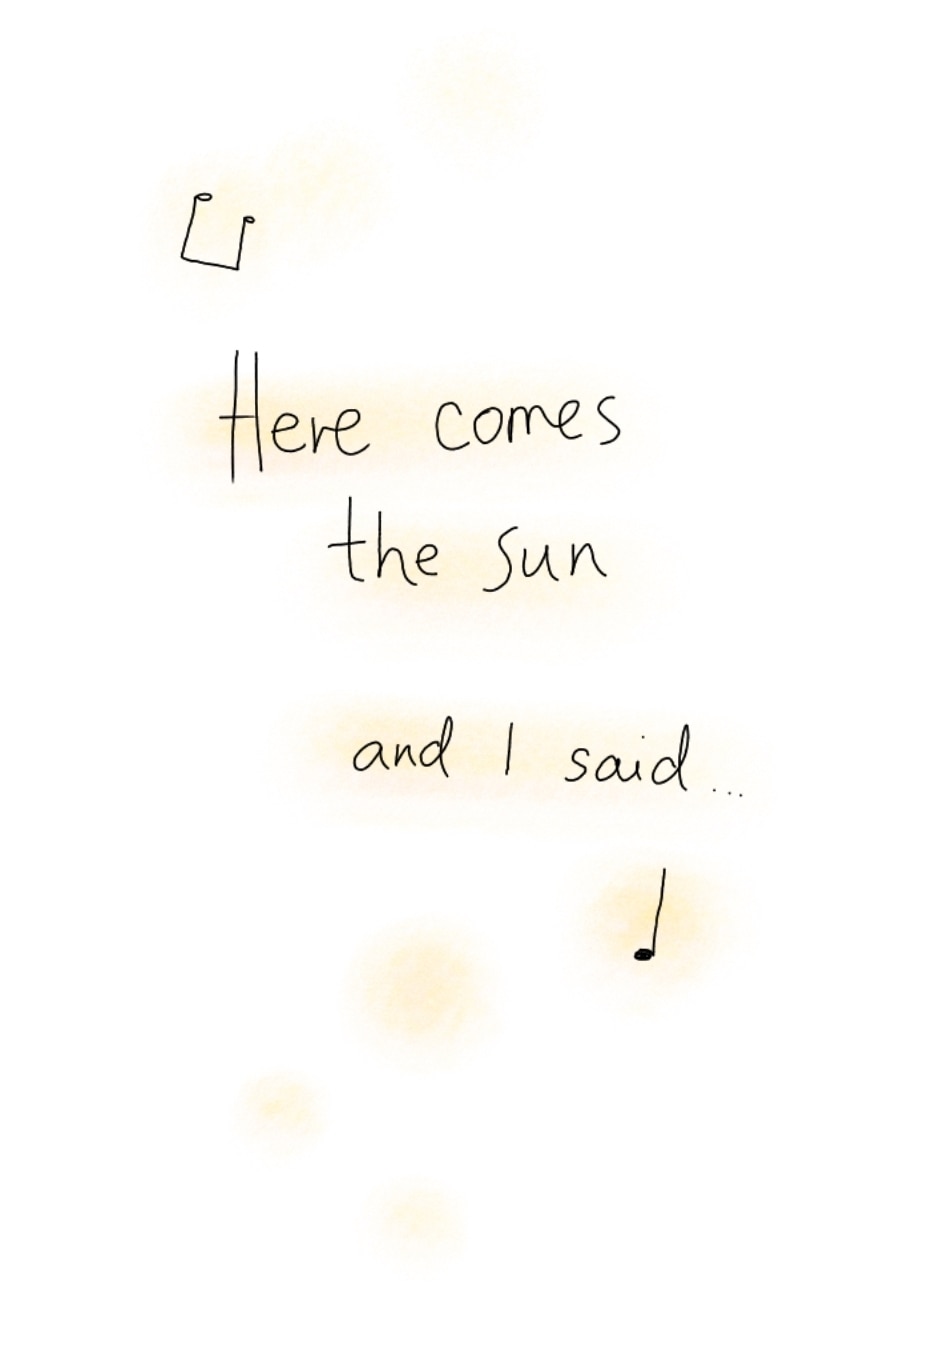 Here comes
the sun
and I said...